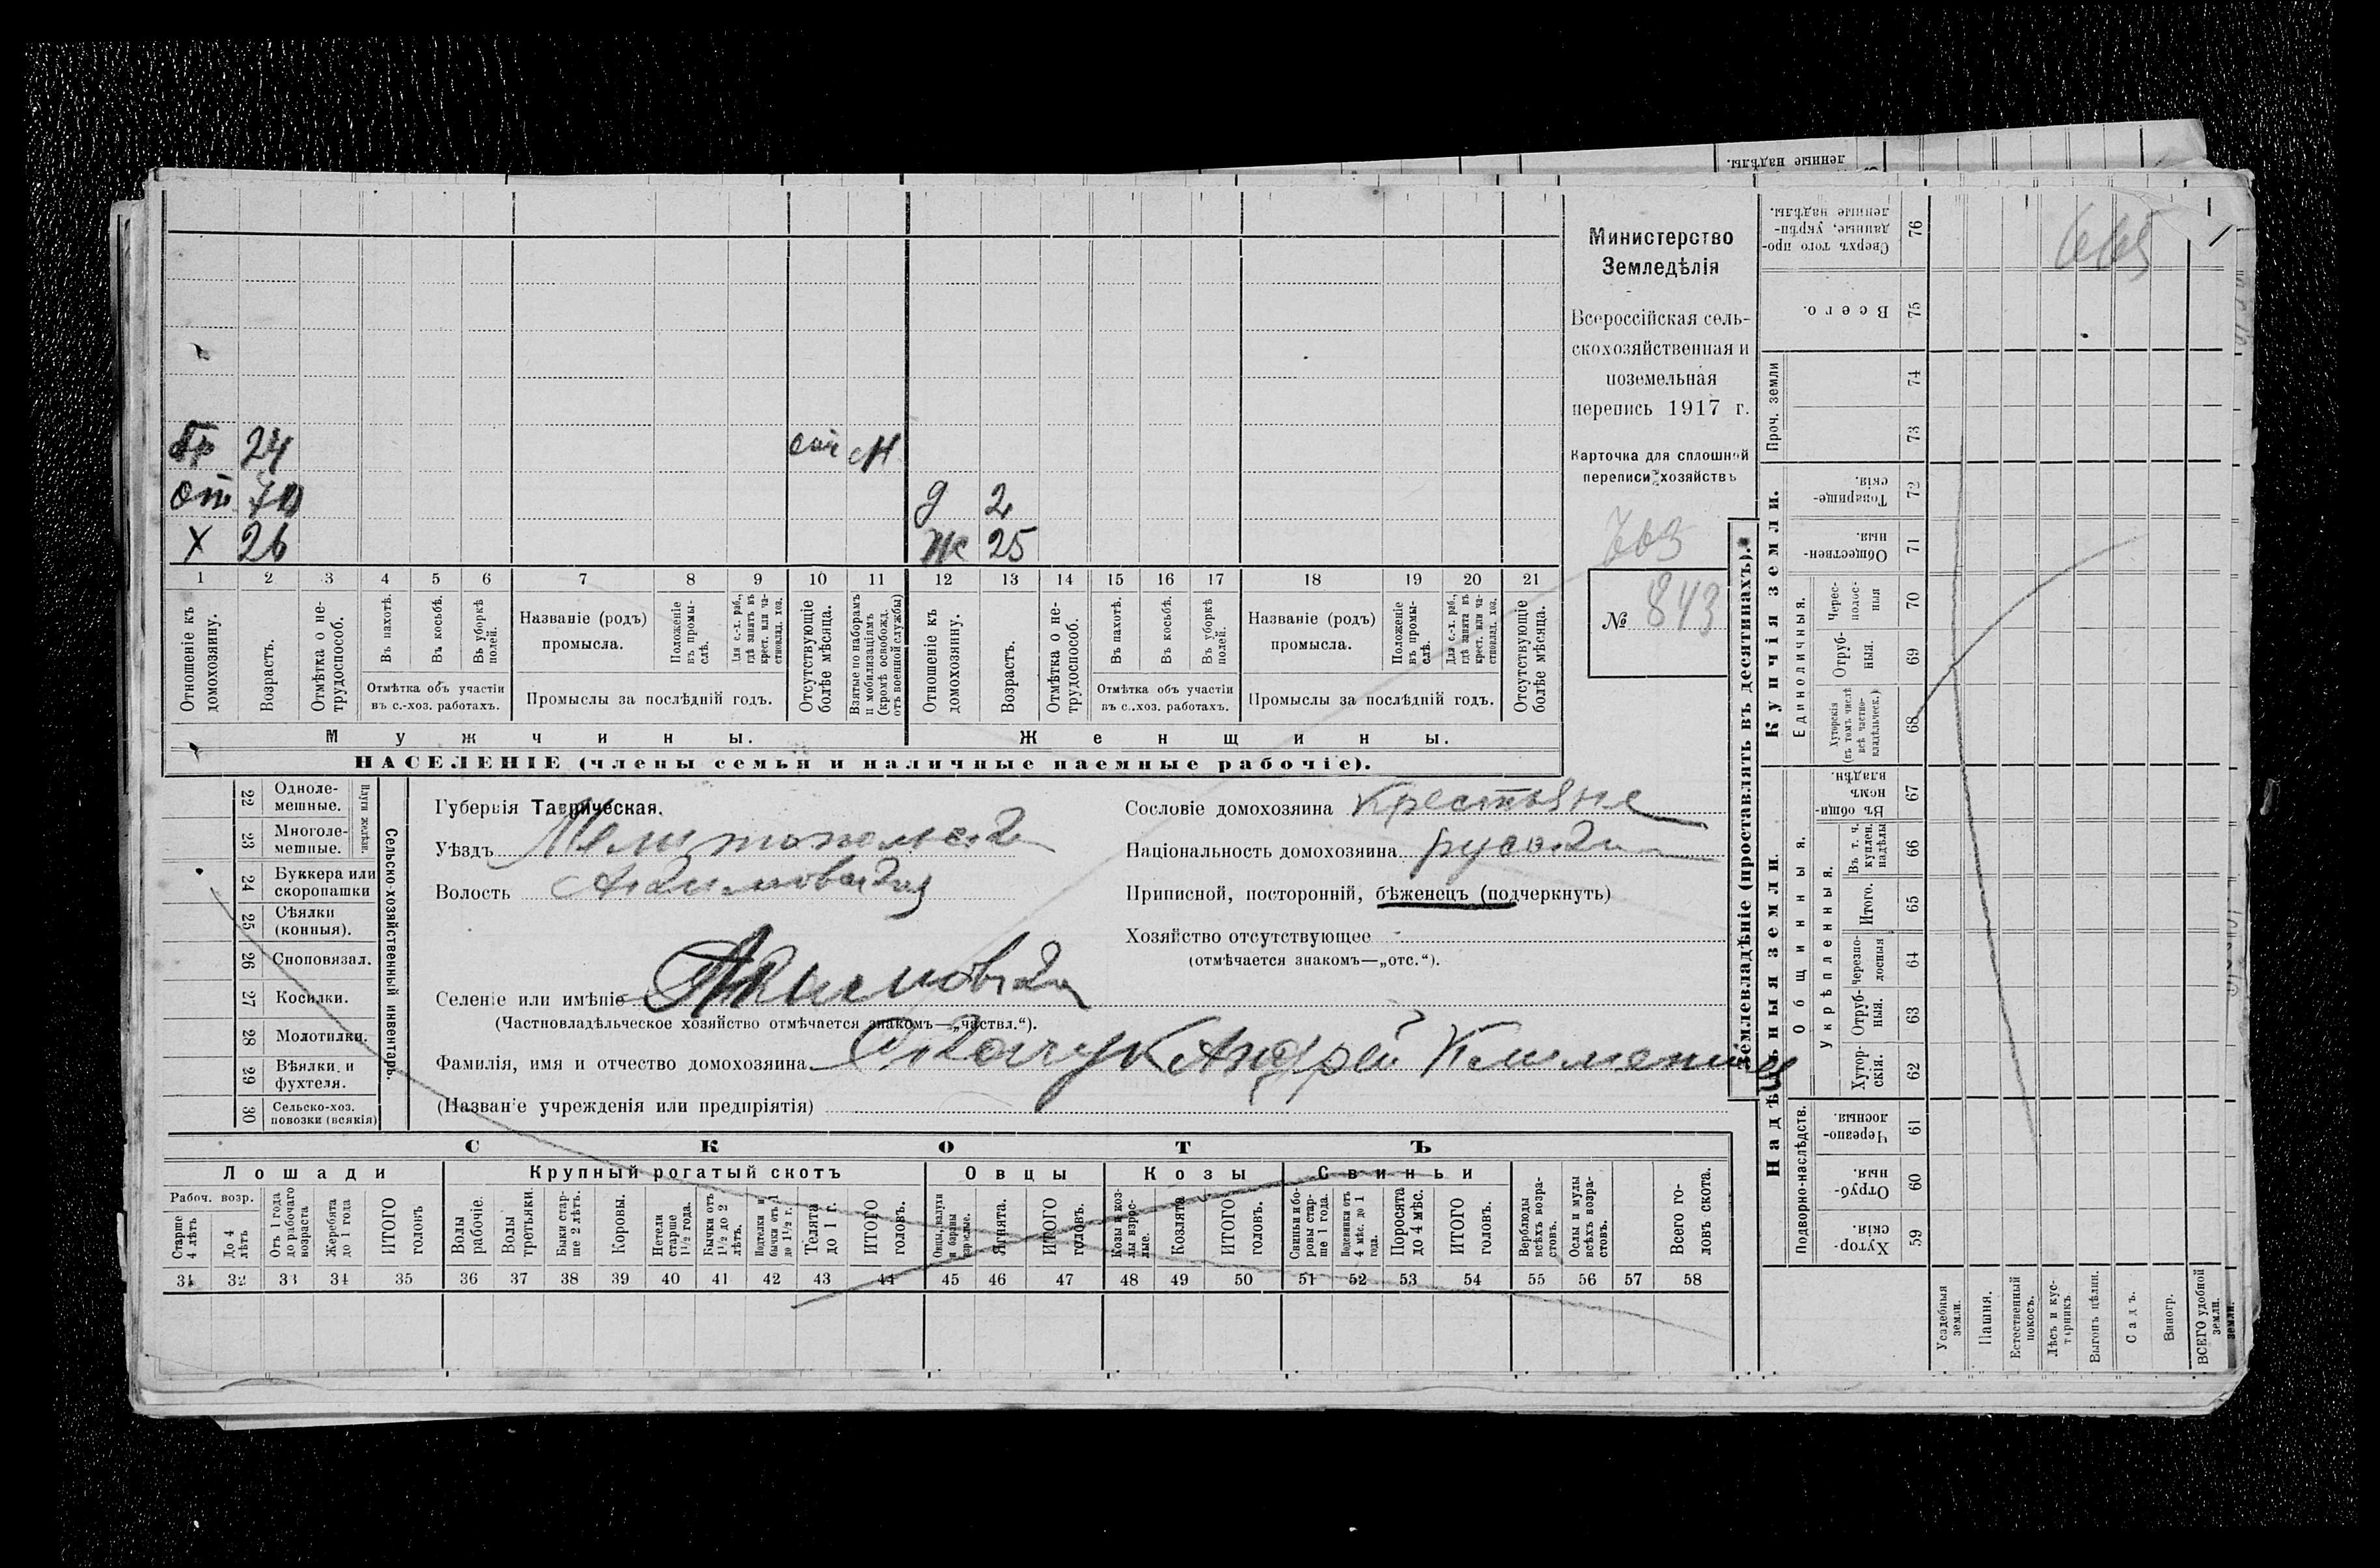 ленные надѣлы.
665
Бр 24 M
от 70 д 2
Х 26 Ж 25
1 2 3 4 5 6 7 8 9 10 11 12 13 14 15 16 17 18 19 20 21
Отношеніе къ домохозяину.
Возрастъ.
Отмѣтка о не-трудоспособ.
Въ пахотѣ.
Въ косьбѣ.
Въ уборкѣ полей.
Отмѣтка объ участіи
въ с.-хоз. работахъ.
Названіе (родъ)
промысла.
Положеніе въ промы-слѣ.
Для с.-х. раб., гдѣ занятъ въ крест. или ча-стновлад. хоз.
Промыслы за послѣдній годъ.
Отсутствующіе болѣе мѣсяца.
Взятые по наборамъ и мобилизаціямъ (кромѣ освобожд. отъ военной службы)
Отношеніе къ домохозяину.
Возрастъ.
Отмѣтка о не-трудоспособ.
Въ пахотѣ.
Въ косьбѣ.
Въ уборкѣ полей.
Отмѣтка объ участіи
въ с.-хоз. работахъ.
Названіе (родъ)
промысла.
Положеніе въ промы-слѣ.
Для с.-х. раб., гдѣ занята въ крест. или ча-стновлад. хоз.
Промыслы за послѣдній годъ.
Отсутствующіе болѣе мѣсяца.
Мужчины. Женщины.
НАСЕЛЕНІЕ (члены семьи и наличные наемные рабочіе).
Министерство
Земледѣлія
Всероссійская сель-
скохозяйственная и
поземельная
перепись 1917 г.
Карточка для сплошной
переписи хозяйствъ
763
№ 843
22 Одноле-мешные.
23 Многоле-мешные.
Плуги желѣзн.
24 Буккера или скоропашки
25 Сѣялки (конныя).
26 Сноповязал.
27 Косилки.
28 Молотилки.
29 Вѣялки и фухтеля.
30 Сельско-хоз. повозки (всякія)
Сельско-хозяйственный инвентарь.
Губернія Таврическая.
Уѣздъ Мелитопольск
Волость Акимовская
Сословіе домохозяина Крестьяне
Національность домохозяина русск
Приписной, посторонній, бѣженецъ (подчеркнуть)
Хозяйство отсутствующее
(отмѣчается знакомъ—„отс.“).
Селеніе или имѣніе Акимовка
(Частновладѣльческое хозяйство отмѣчается знакомъ—„частвл.“).
Фамилія, имя и отчество домохозяина Андрей
(Названіе учрежденія или предпріятія)
СКОТЪ
Лошади Крупный рогатый скотъ Овцы Козы Свиньи
Рабоч. возр.
Старше 4 лѣтъ
До 4 лѣтъ
Отъ 1 года до рабочаго возраста
Жеребята до 1 года
ИТОГО головъ
Волы рабочіе.
Волы третьяки.
Быки стар-ше 2 лѣтъ.
Коровы.
Нетели старше 1½ года.
Бычки отъ 1½ до 2 лѣтъ.
Подтелки и бычки отъ 1 до 1½ г.
Телята до 1 г.
ИТОГО головъ.
Овцы, валухи и бараны взрослые.
Ягнята.
ИТОГО головъ.
Козы и коз-лы взрос-лые.
Козлята
ИТОГО головъ.
Свиньи и бо-ровы стар-ше 1 года.
Подсвинки отъ 4 мѣс. до 1 года.
Поросята до 4 мѣс.
ИТОГО головъ.
Верблюды всѣхъ возра-стовъ.
Ослы и мулы всѣхъ возра-стовъ.
Всего го-ловъ скота.
31 32 33 34 35 36 37 38 39 40 41 42 43 44 45 46 47 48 49 50 51 52 53 54 55 56 57 58
Землевладѣніе (проставлять въ десятинахъ).
Купчія земли.
Надѣльныя земли.
Проч. земли
Единоличныя.
Общинныя.
Укрѣпленныя.
Подворно-наслѣдств.
76 Сверхъ того про-данные, укрѣп-ленные надѣлы.
75 Всего.
74
73
72 Товарище-скія.
71 Обществен-ныя.
70 Черес-полос-ныя
69 Отруб-ныя.
68 Хуторскія (въ томъ числѣ всѣ частно-владѣльческ.)
67 Въ общин-номъ владѣн.
66 Въ т. ч. куплен. надѣлы
65 Итого.
64 Черезпо-лосныя
63 Отруб-ныя.
62 Хутор-скія.
61 Черезпо-лосныя
60 Отруб-ныя.
59 Хутор-скія.
Усадебныя земли.
Пашня.
Естественный покосъ.
Лѣсъ и кус-тарникъ.
Выгонъ цѣлин.
Садъ.
Виногр.
ВСЕГО удобной земли.